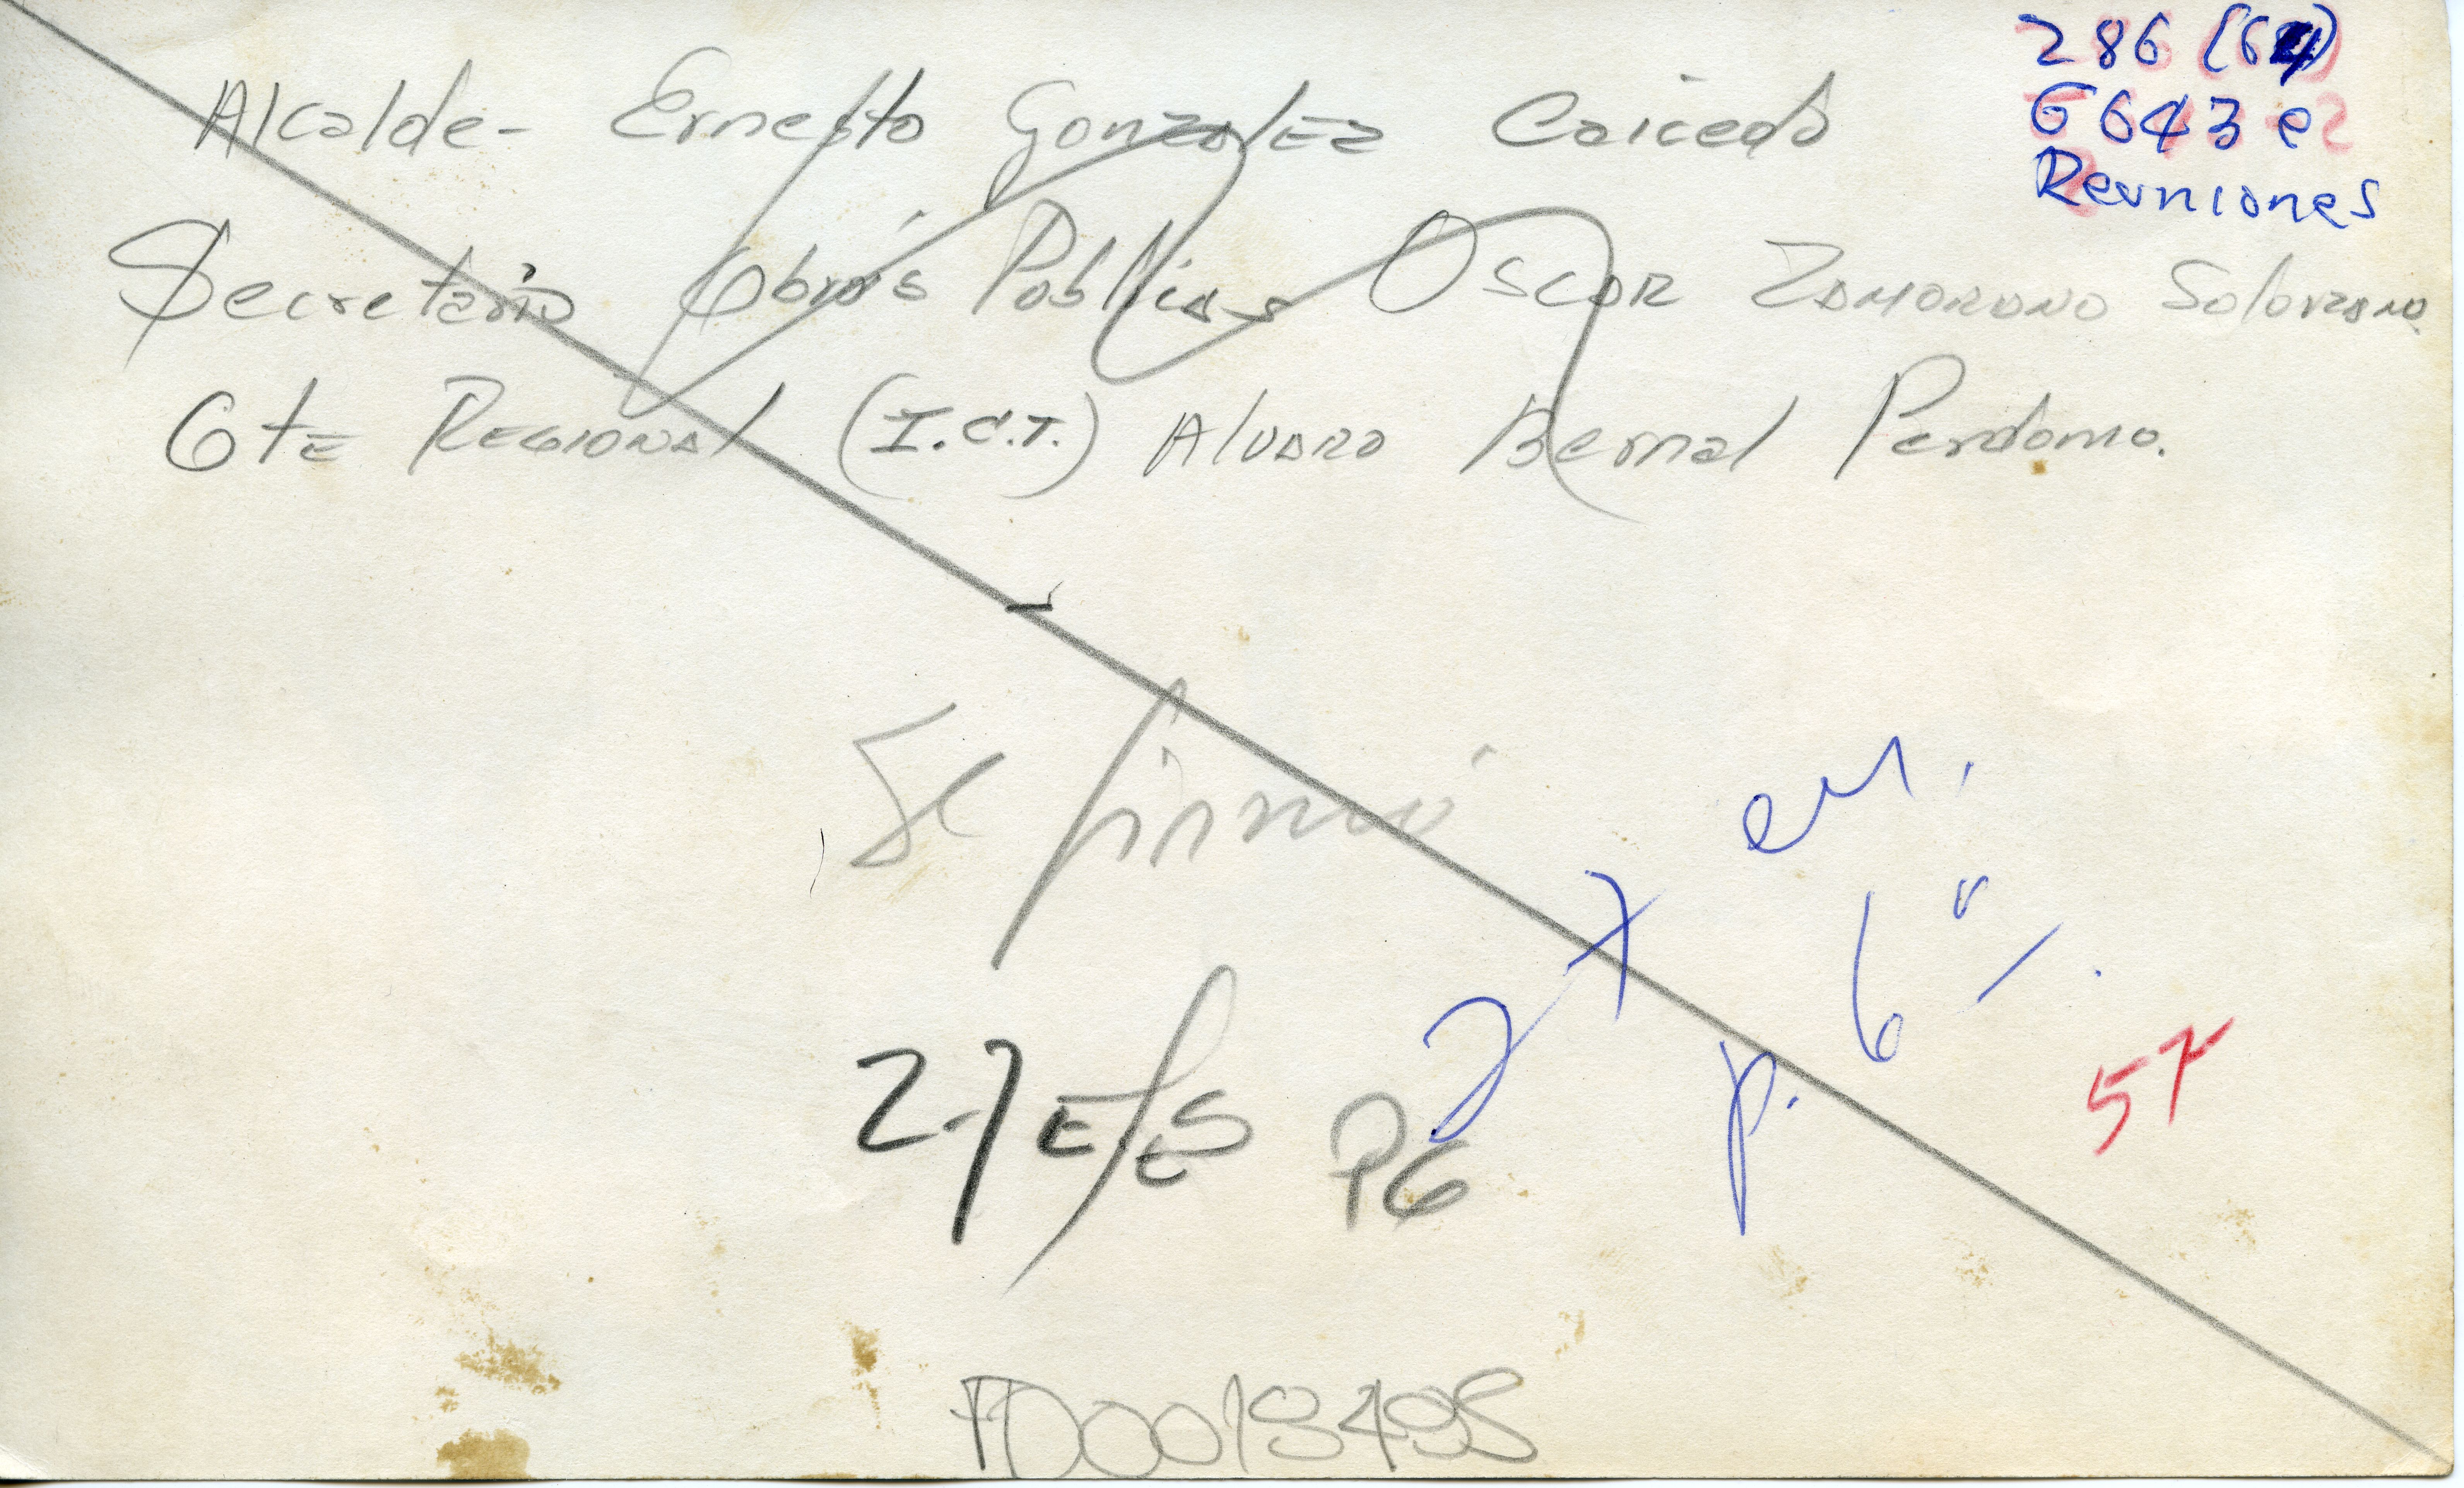 286 (64)
6643 e2
Reuniones
Alcalde - Ernesto Gonzalez Caicedo
Secretario Obras Publicas Oscar Zamorano Solorzano
Gte Regional (I.C.T.) Alvaro Bernal Perdomo.
Se firmó
27 P6
2 7
6"
p.
57